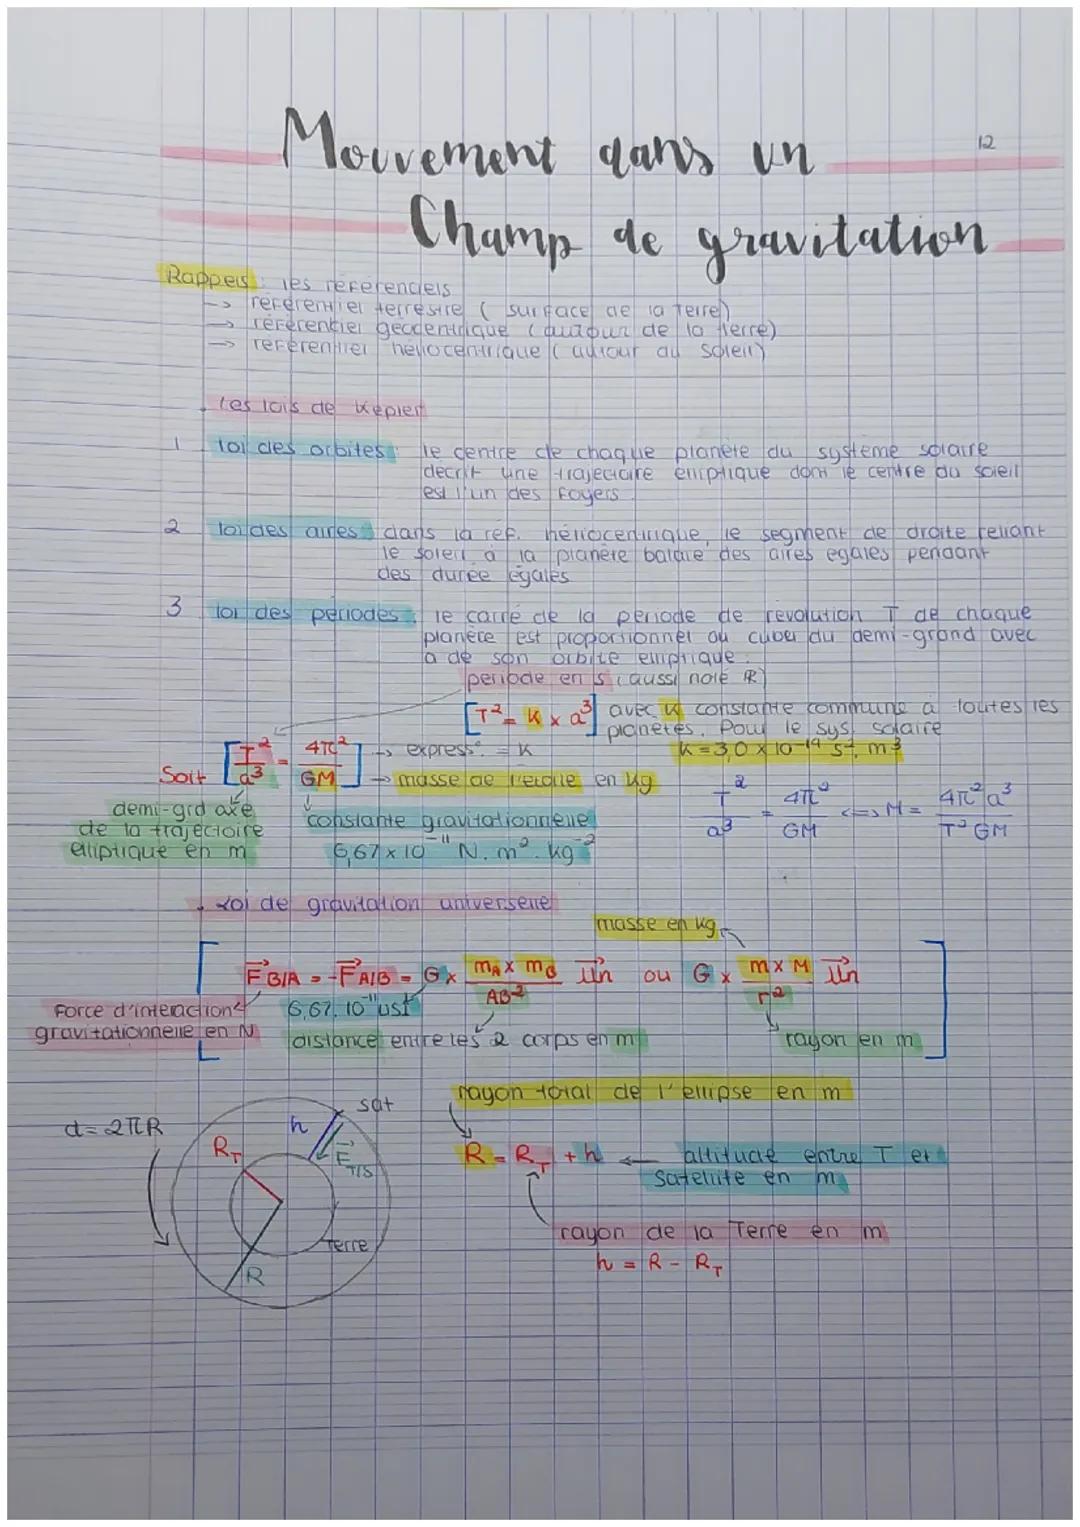 Mouvement dans un
12
Champ de gravitation
Rappels : les référenciels
-> référentiel terrestre ( surface de la Terre)
-> référenciel géocentrique (autour de la terre)
-> référentiel héliocentrique ( autour du soleil)
Les lois de Kepler
1 loi des orbites : le centre de chaque planète du système solaire
décrit une trajectoire elliptique dont le centre du soleil
est l'un des foyers.
2 loi des aires : dans la réf. héliocentrique, le segment de droite reliant
le soleil à la planète balaie des aires égales pendant
des durée égales
3 loi des périodes : le carré de la période de révolution T de chaque
planète est proportionnel au cube du demi-grand avec
a de son orbite elliptique.
période en s (aussi noté R)
[T² = K x a³] avec K constante commune à toutes les
planètes. Pour le sys. solaire
K = 3,0 x 10⁻¹⁹ s². m³
Soit [T²/a³ = 4π²/GM] -> express° = K
-> masse de l'étoile en kg
T²/a³ = 4π²/GM <=> M = 4π² a³/T² GM
demi-grd axe
de la trajectoire
elliptique en m
constante gravitationnelle
6,67 x 10⁻¹¹ N. m². kg⁻²
Loi de gravitation universelle
masse en kg
F B/A = -F A/B = G x mA x mB / AB² un ou G x m x M / r² un
Force d'interaction
gravitationnelle en N
6,67. 10⁻¹¹ usi
distance entre les 2 corps en m
rayon en m
rayon total de l'ellipse en m
d = 2πR
sat
h
F T/S
RT
Terre
R
R = RT + h <- altitude entre T et
satellite en m
rayon de la Terre en m
h = R - RT